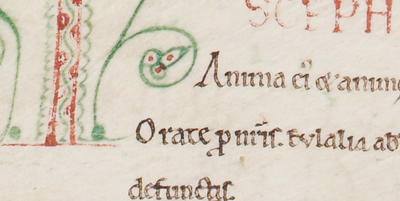 SCEPH
Anima ei᷒ & anim
Orate ꝑ nr̄is. eulalia ab
defunctis.